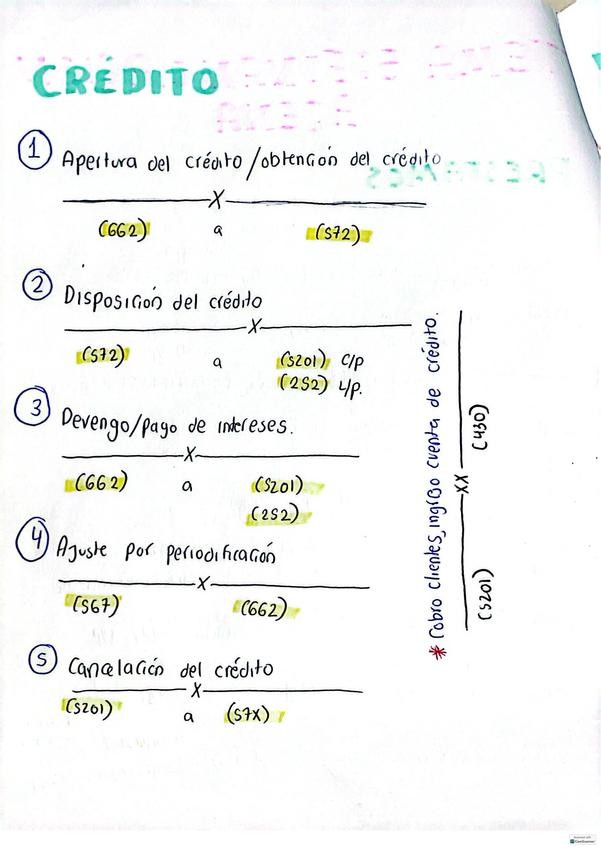 CRÉDITO
1 Apertura del crédito/obtención del crédito
X
(662) a (572)
2 Disposición del crédito
X
(572) a (5201) c/p
(252) L/p.
3 Devengo/pago de intereses.
X
(662) a (5201)
(252)
4 Ajuste por periodificación
X
(567) (662)
5 Cancelación del crédito
X
(5201) a (57X)
* Cobro clientes, ingreso cuenta de crédito.
XX
(5201) (430)
Scanned with
CamScanner